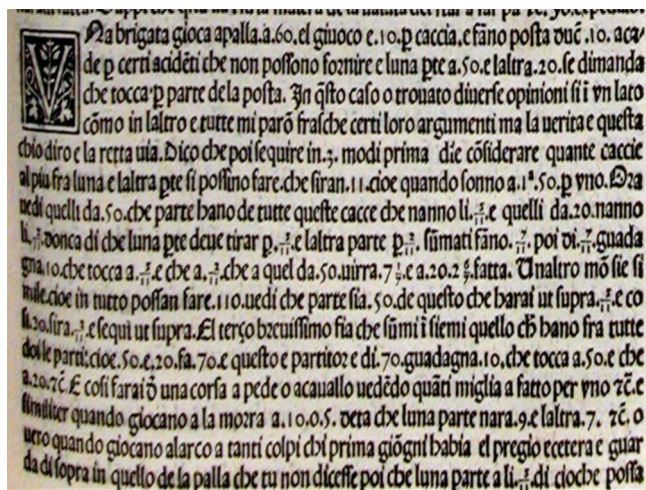 Na brigata gioca apalla.a.60.el giuoco e.10.ꝑ caccia.e fāno posta duc̄.10. aca/
de ꝑ certi acidēti che non possono fornire e luna ꝑte a.50.e laltra.20.se dimanda
che tocca ꝑ parte de la posta. In q̄sto caso o trouato diuerse opinioni si ī vn lato
cōmo in laltro e tutte mi parō frasche certi loro argumenti ma la uerita e questa
chio diro e la retta uia. Dico che poi sequire in.3. modi prima die cōsiderare quante caccie
al piu fra luna e laltra ꝑte si possino fare.che siran.11.cioe quando sonno a.1ª.50.ꝑ vno. Ora
uedi quelli da.50.che parte hano de tutte queste cacce che nanno li.5/11.e quelli da.20.nanno
li.2/11.donca di che luna ꝑte deue tirar ꝑ.5/11.e laltra parte ꝑ 2/11. sūmati fāno.7/11. poi di.7/11.guada
gna.10.che tocca a.5/11.e che a.2/11.che a quel da.50.uirra.7 1/7.e a.20.2 6/7.fatta. Unaltro mō sie si
mile.cioe in tutto possan fare.110.uedi che parte sia. 50.de questo che harai ut supra.5/11.e co
si.20.sira.2/11.e sequi ut supra. El terço breuissimo sia che sūmi ī siemi quello ch̄ hano fra tutte
doi le parti:cioe.50.e.20.fa.70.e questo e partitore di.70.guadagna.10.che tocca a.50.e che
a.20.⁊c̄. E cosi farai d̄ una corsa a pede o acauallo uedēdo quāti miglia a fatto per vno ⁊c̄.e
similiter quando giocano a la morra a.10.o.5. deta che luna parte nara.9.e laltra.7. ⁊c̄. o
uero quando giocano alarco a tanti colpi chi prima giōgni habia el pregio ecetera e guar
da di sopra in quello de la palla che tu non dicesse poi che luna parte a li.5/11.di cioche possa